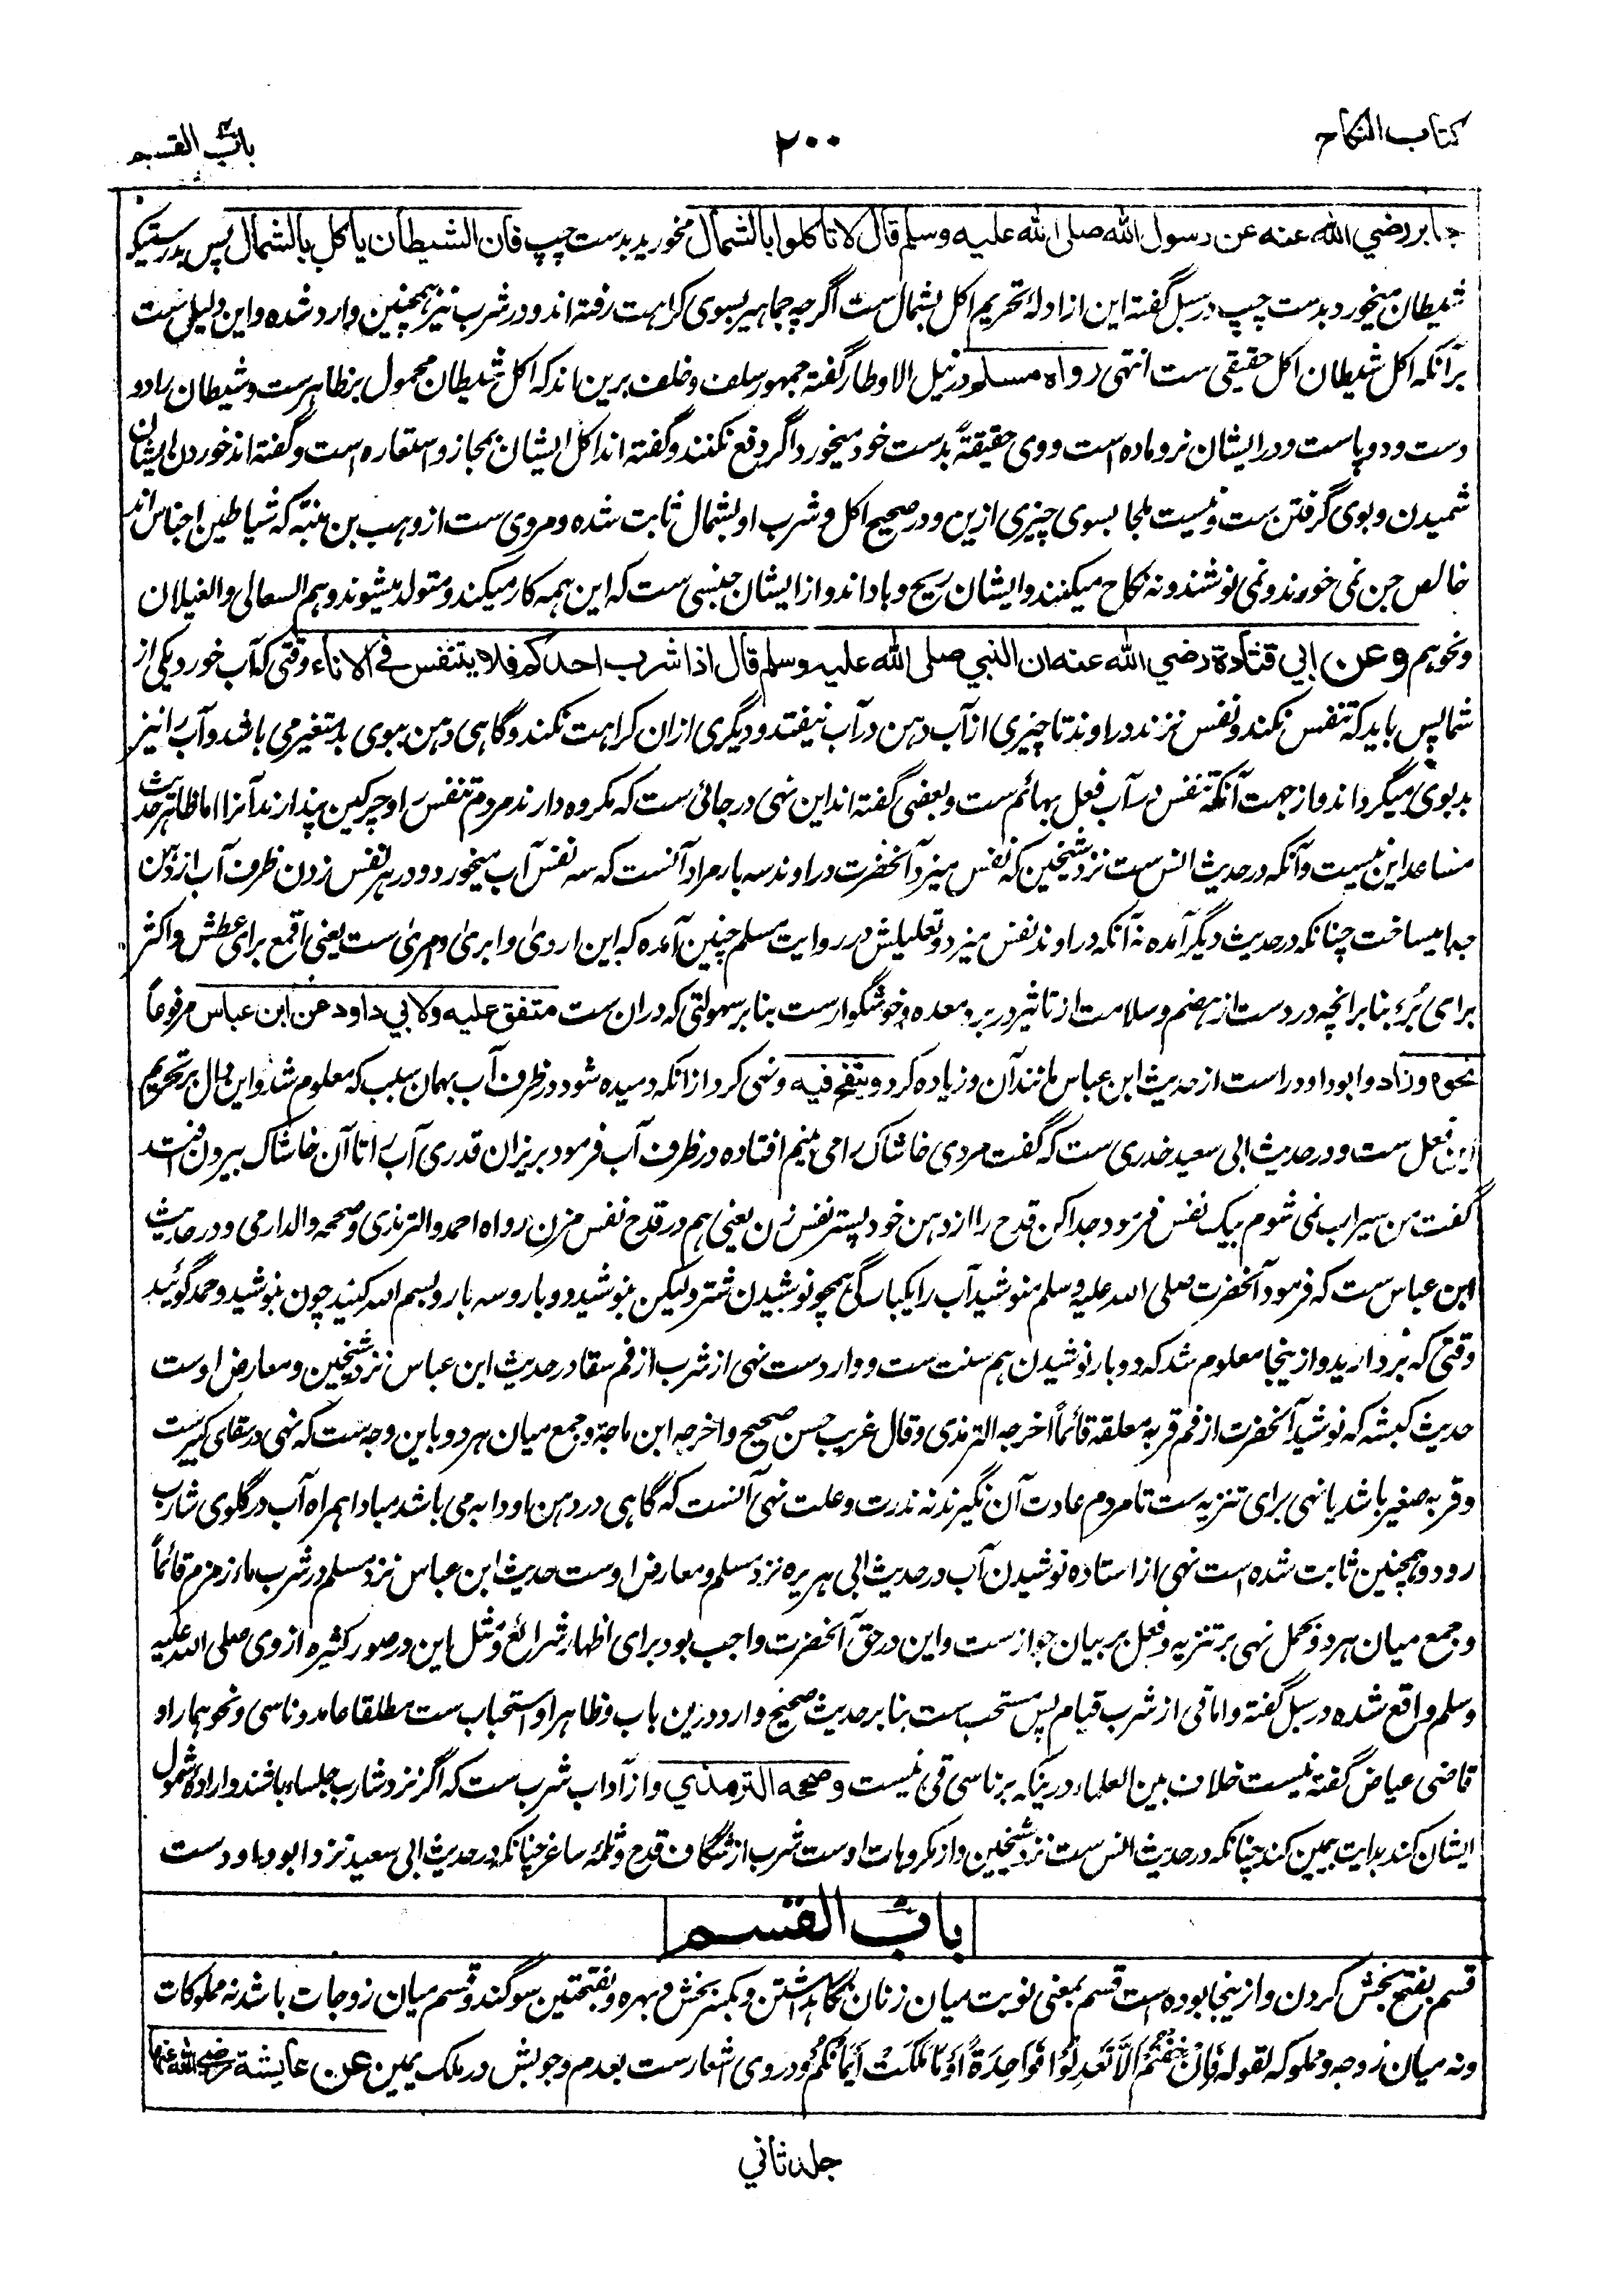 كتاب النكاح
٢٠٠
باب القسم
جابر رضي الله عنه عن رسول الله صلى الله عليه وسلم قال لا تاكلوا بالشمال مخورید بدست چپ فان الشيطان ياكل بالشمال پس بدرستیکه
شیطان میخورد بدست چپ در سبل گفته این از ادلهٔ تحریم اکل بشمال ست اگرچه جماهیر بسوی کراهت رفته اند و در شرب نیز همچنین وارد شده و این دلیلی ست
برآنکه اکل شیطان اکل حقیقی ست انتهی رواه مسلم در نیل الاوطار گفته جمهور سلف و خلف برین اند که اکل شیطان محمول بر ظاهرست و شیطان را دو
دست و دو پاست و در ایشان نر و ماده است و وی حقیقةً بدست خود میخورد اگر دفع نکنند و گفته اند اکل ایشان بمجاز و استعاره است و گفته اند خوردن ایشان
شمیدن و بوی گرفتن ست و نیست ملجا بسوی چیزی ازین و در صحیح اکل و شرب او بشمال ثابت شده و مروی ست از وهب بن منبه که شیاطین اجناس اند
خالص جن نمی خورند و نمی نوشند و نه نکاح میکنند و ایشان ریح و باد اند و از ایشان جنسی ست که این همه کار میکند و متولد میشوند و هم السعالی والغیلان
ونحوهم وعن ابي قتادة رضي الله عنه ان النبي صلى الله عليه وسلم قال اذا شرب احدكم فلا يتنفس في الاناء وقتی که آب خورد یکی از
شما پس باید که تنفس نکند و نفس نزند در اوند تا چیزی از آب دهن در آب نیفتد و دیگری ازان کراهت نکند و گاهی دهن ببوی بد متغیر می باشد و آب را نیز
بدبوی میگرداند و از جهت آنکه تنفس در آب فعل بهائم ست و بعضی گفته اند این نهی در جائی ست که مکروه دارند مردم تنفس او و چرکین پندارند آنرا اما ظاهر حدیث
مساعد این نیست و آنکه در حدیث انس ست نزد شیخین که نفس میزد آنحضرت در اوند سه بار مراد آنست که سه نفس آب میخورد و در هر نفس زدن ظرف آب از دهن
جدا میساخت چنانکه در حدیث دیگر آمده نه آنکه در اوند نفس میزد و تعلیلش در روایت مسلم چنین آمده که این اروی و ابری و امری ست یعنی اقمع برای عطش و اکثر
برای بُرء بنابر انچه دروست از هضم و سلامت از تاثیر در برد معده و خوشگوارست بنابر سهولتی که دران ست متفق عليه ولابي داود عن ابن عباس مرفوعاً
نحوه وزاد و ابوداود راست از حدیث ابن عباس مانند آن و زیاده کرد وينفخ فيه و نهی کرد ازانکه دمیده شود در ظرف آب بهمان سبب که معلوم شد و این دال بر تحریم
این فعل ست و در حدیث ابی سعید خدری ست که گفت مردی خاشاک را می بینم افتاده در ظرف آب فرمود بریزان قدری آب را تا آن خاشاک بیرون افتد
گفت من سیراب نمی شوم بیک نفس فرمود جدا کن قدح را از دهن خود پستر نفس زن یعنی هم در قدح نفس مزن رواه احمد والترمذی وصححه والدارمی و در حدیث
ابن عباس ست که فرمود آنحضرت صلی الله علیه وسلم منوشید آب را یکبارگی همچو نوشیدن شتر ولیکن بنوشید دو بار و سه بار و بسم الله کنید چون بنوشید و حمد گوئید
وقتی که بردارید و ازینجا معلوم شد که دو بار نوشیدن هم سنت ست و واردست نهی از شرب از فم سقا در حدیث ابن عباس نزد شیخین و معارض اوست
حدیث کبشه که نوشید آنحضرت از فم قربه معلقة قائماً اخرجه الترمذی وقال غریب حسن صحیح واخرجه ابن ماجة و جمع میان هردو باین وجه ست که نهی در سقای کبیرست
و قربه صغیر باشد یا نهی برای تنزیه ست تا مردم عادت آن نگیرند نه ندرت و علت نهی آنست که گاهی در دهن او دابه می باشد مبادا همراه آب در گلوی شارب
رود و همچنین ثابت شده است نهی از استاده نوشیدن آب در حدیث ابی هریره نزد مسلم و معارض اوست حدیث ابن عباس نزد مسلم در شرب ماء زمزم قائماً
و جمع میان هردو بحمل نهی بر تنزیه و فعل بر بیان جوازست و این در حق آنحضرت واجب بود برای اظهار شرائع و مثل این در صور کثیره از وی صلی الله علیه
وسلم واقع شده در سبل گفته و اما قی از شرب قیام پس مستحب ست بنابر حدیث صحیح وارد درین باب و ظاهر او استحباب ست مطلقا عامد و ناسی و نحو هما را و
قاضی عیاض گفته نیست خلاف بین العلماء درینکه بر ناسی قی نیست وصححه الترمذي و از آداب شرب ست که اگر نزد شارب جلساء باشند و ارادهٔ شمول
ایشان کند بدایت بیمین کند چنانکه در حدیث انس ست نزد شیخین و از مکروهات اوست شرب از شگاف قدح و ثلمهٔ ساغر چنانکه در حدیث ابی سعید نزد ابوداود ست
باب القسم
قسم بفتح بخش کردن و ازینجا بوده است قسم بمعنی نوبت میان زنان نگاهداشتن و بکسر بخش و بهره و بفتحتین سوگند و قسم میان زوجات باشد نه مملوکات
و نه میان زوجه و مملوکه لقوله فَإِنْ خِفْتُمْ أَلَّا تَعْدِلُوا فَوَاحِدَةً أَوْ مَا مَلَكَتْ أَيْمَانُكُمْ و در وی اشعارست بعدم وجوبش در ملک یمین عن عايشة رضي الله عنها
جلد ثاني